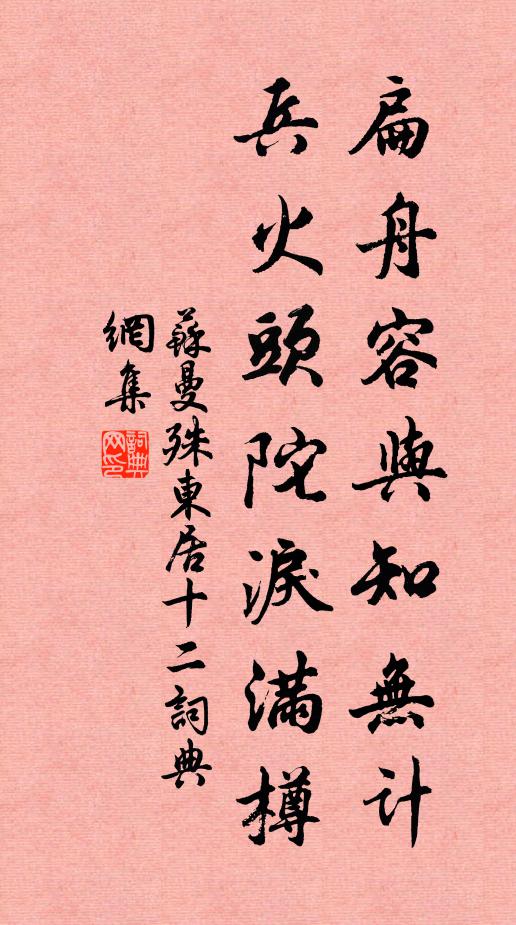 扁舟容與知無計
兵火頭陀淚滿樽
蘇曼殊東居十二詞典
網集
詞典網印